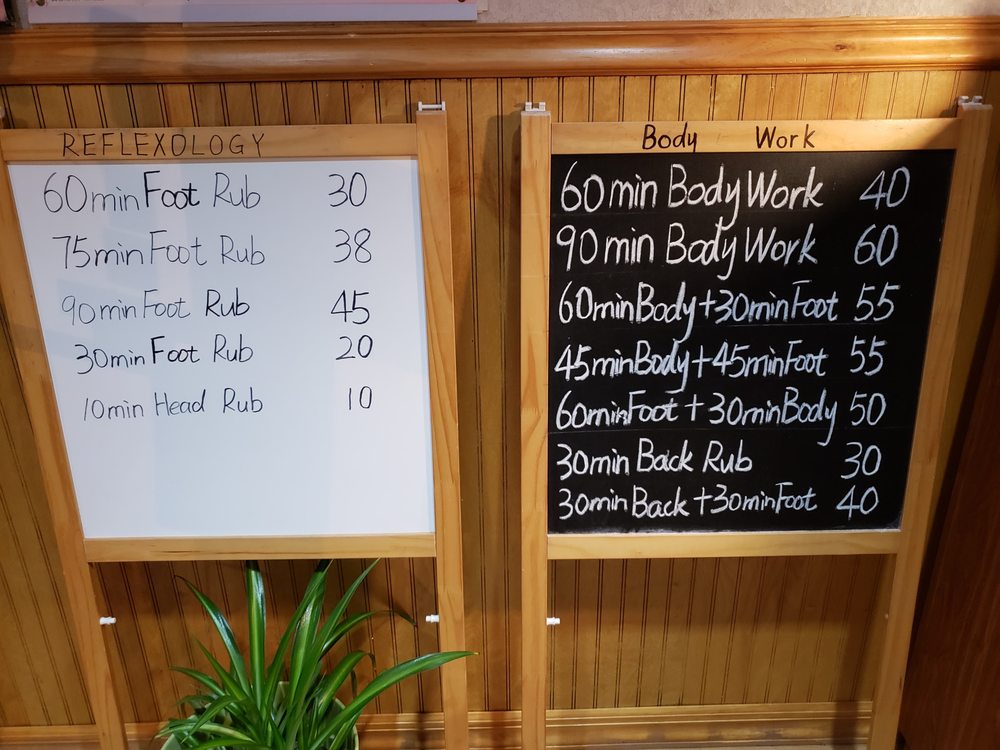 REFLEXOLOGY
60min Foot Rub 30
75min Foot Rub 38
90min Foot Rub 45
30min Foot Rub 20
10min Head Rub 10
Body Work
60min Body Work 40
90min Body Work 60
60minBody+30minFoot 55
45minBody+45minFoot 55
60minFoot+30minBody 50
30min Back Rub 30
30minBack+30minFoot 40